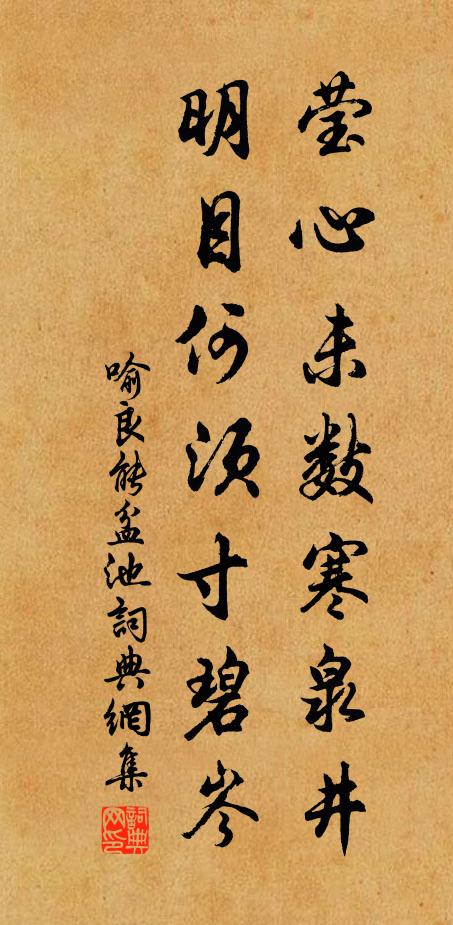 莹心未数寒泉井
明目何须寸碧岑
喻良能盆池詞典網集
詞典網印